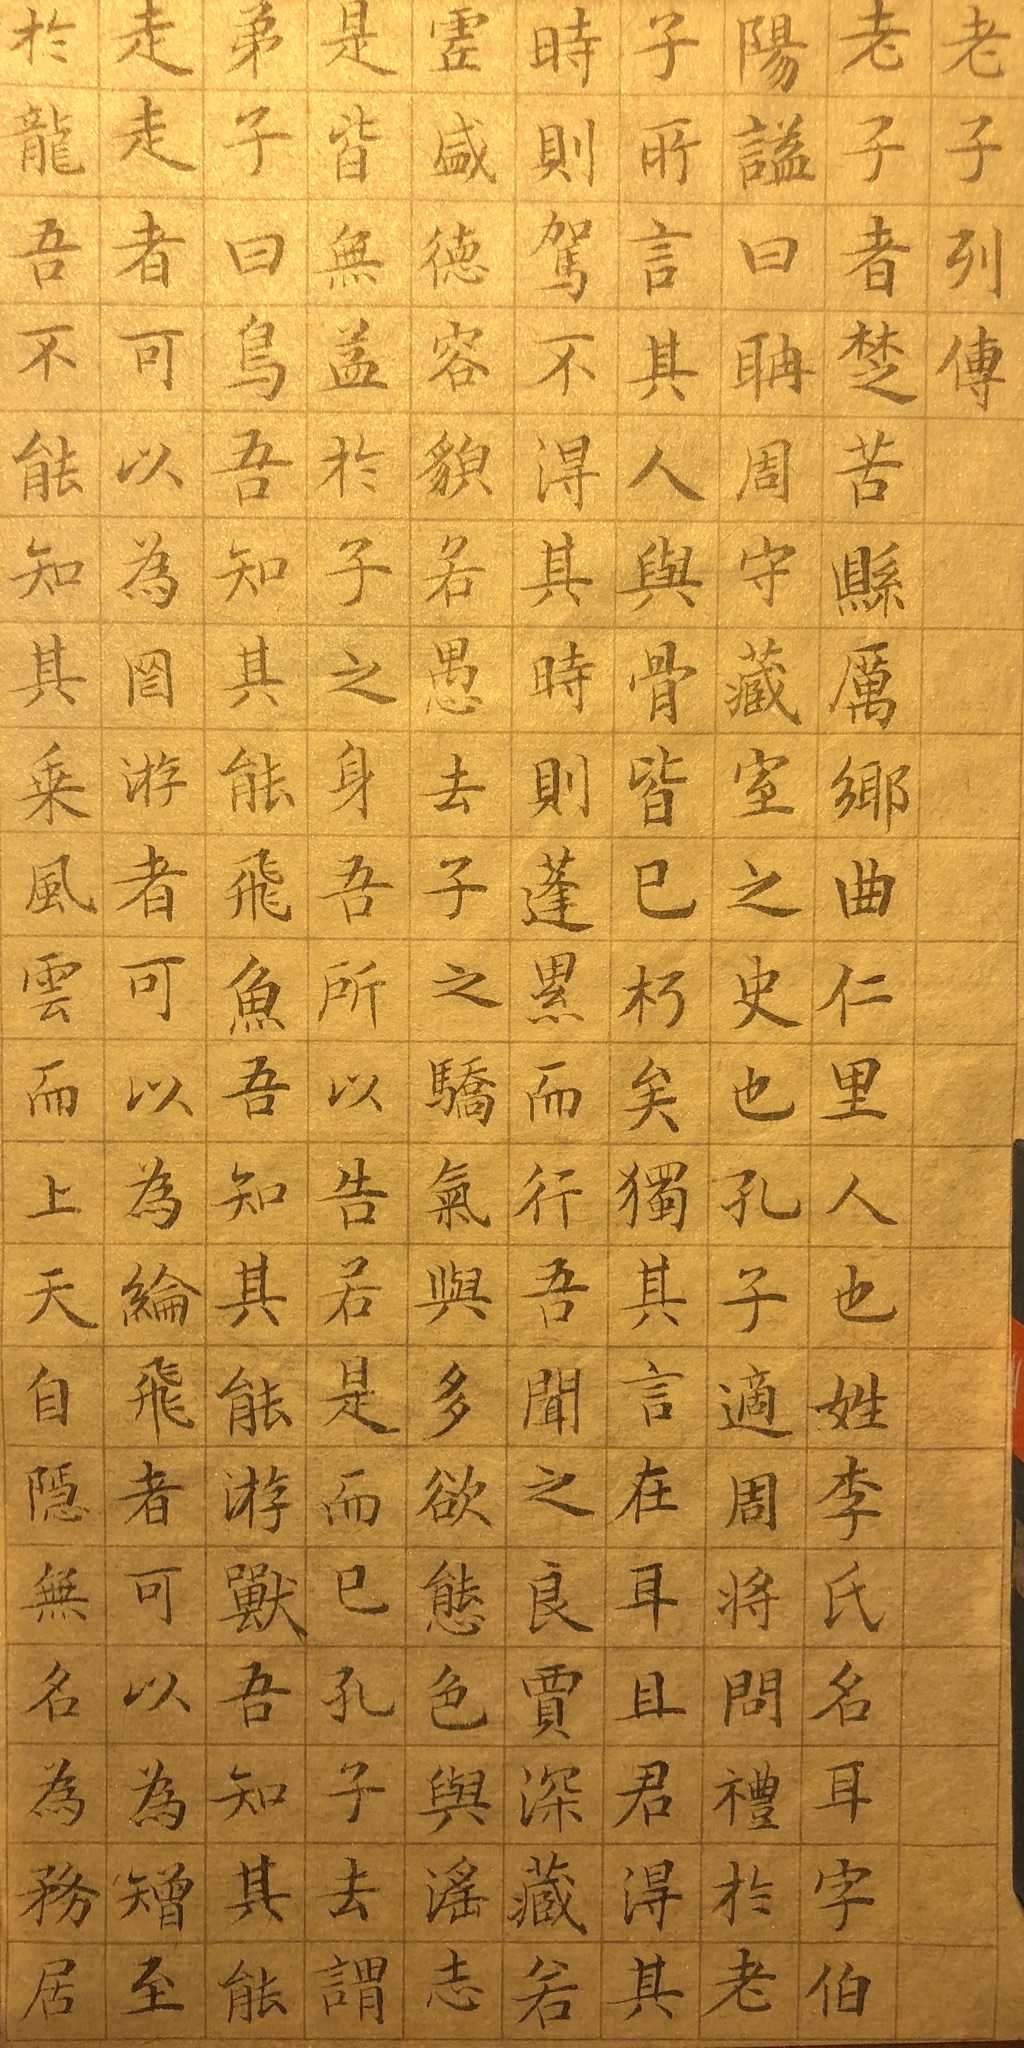 老子列傳
老子者楚苦縣厲鄉曲仁里人也姓李氏名耳字伯
陽謚曰聃周守藏室之史也孔子適周將問禮於老
子所言其人與骨皆已朽矣獨其言在耳且君得其
時則駕不得其時則蓬累而行吾聞之良賈深藏若
虛盛德容貌若愚去子之驕氣與多欲態色與淫志
是皆無益於子之身吾所以告若是而已孔子去謂
弟子曰鳥吾知其能飛魚吾知其能游獸吾知其能
走走者可以為罔游者可以為綸飛者可以為矰至
於龍吾不能知其乘風雲而上天自隱無名為務居